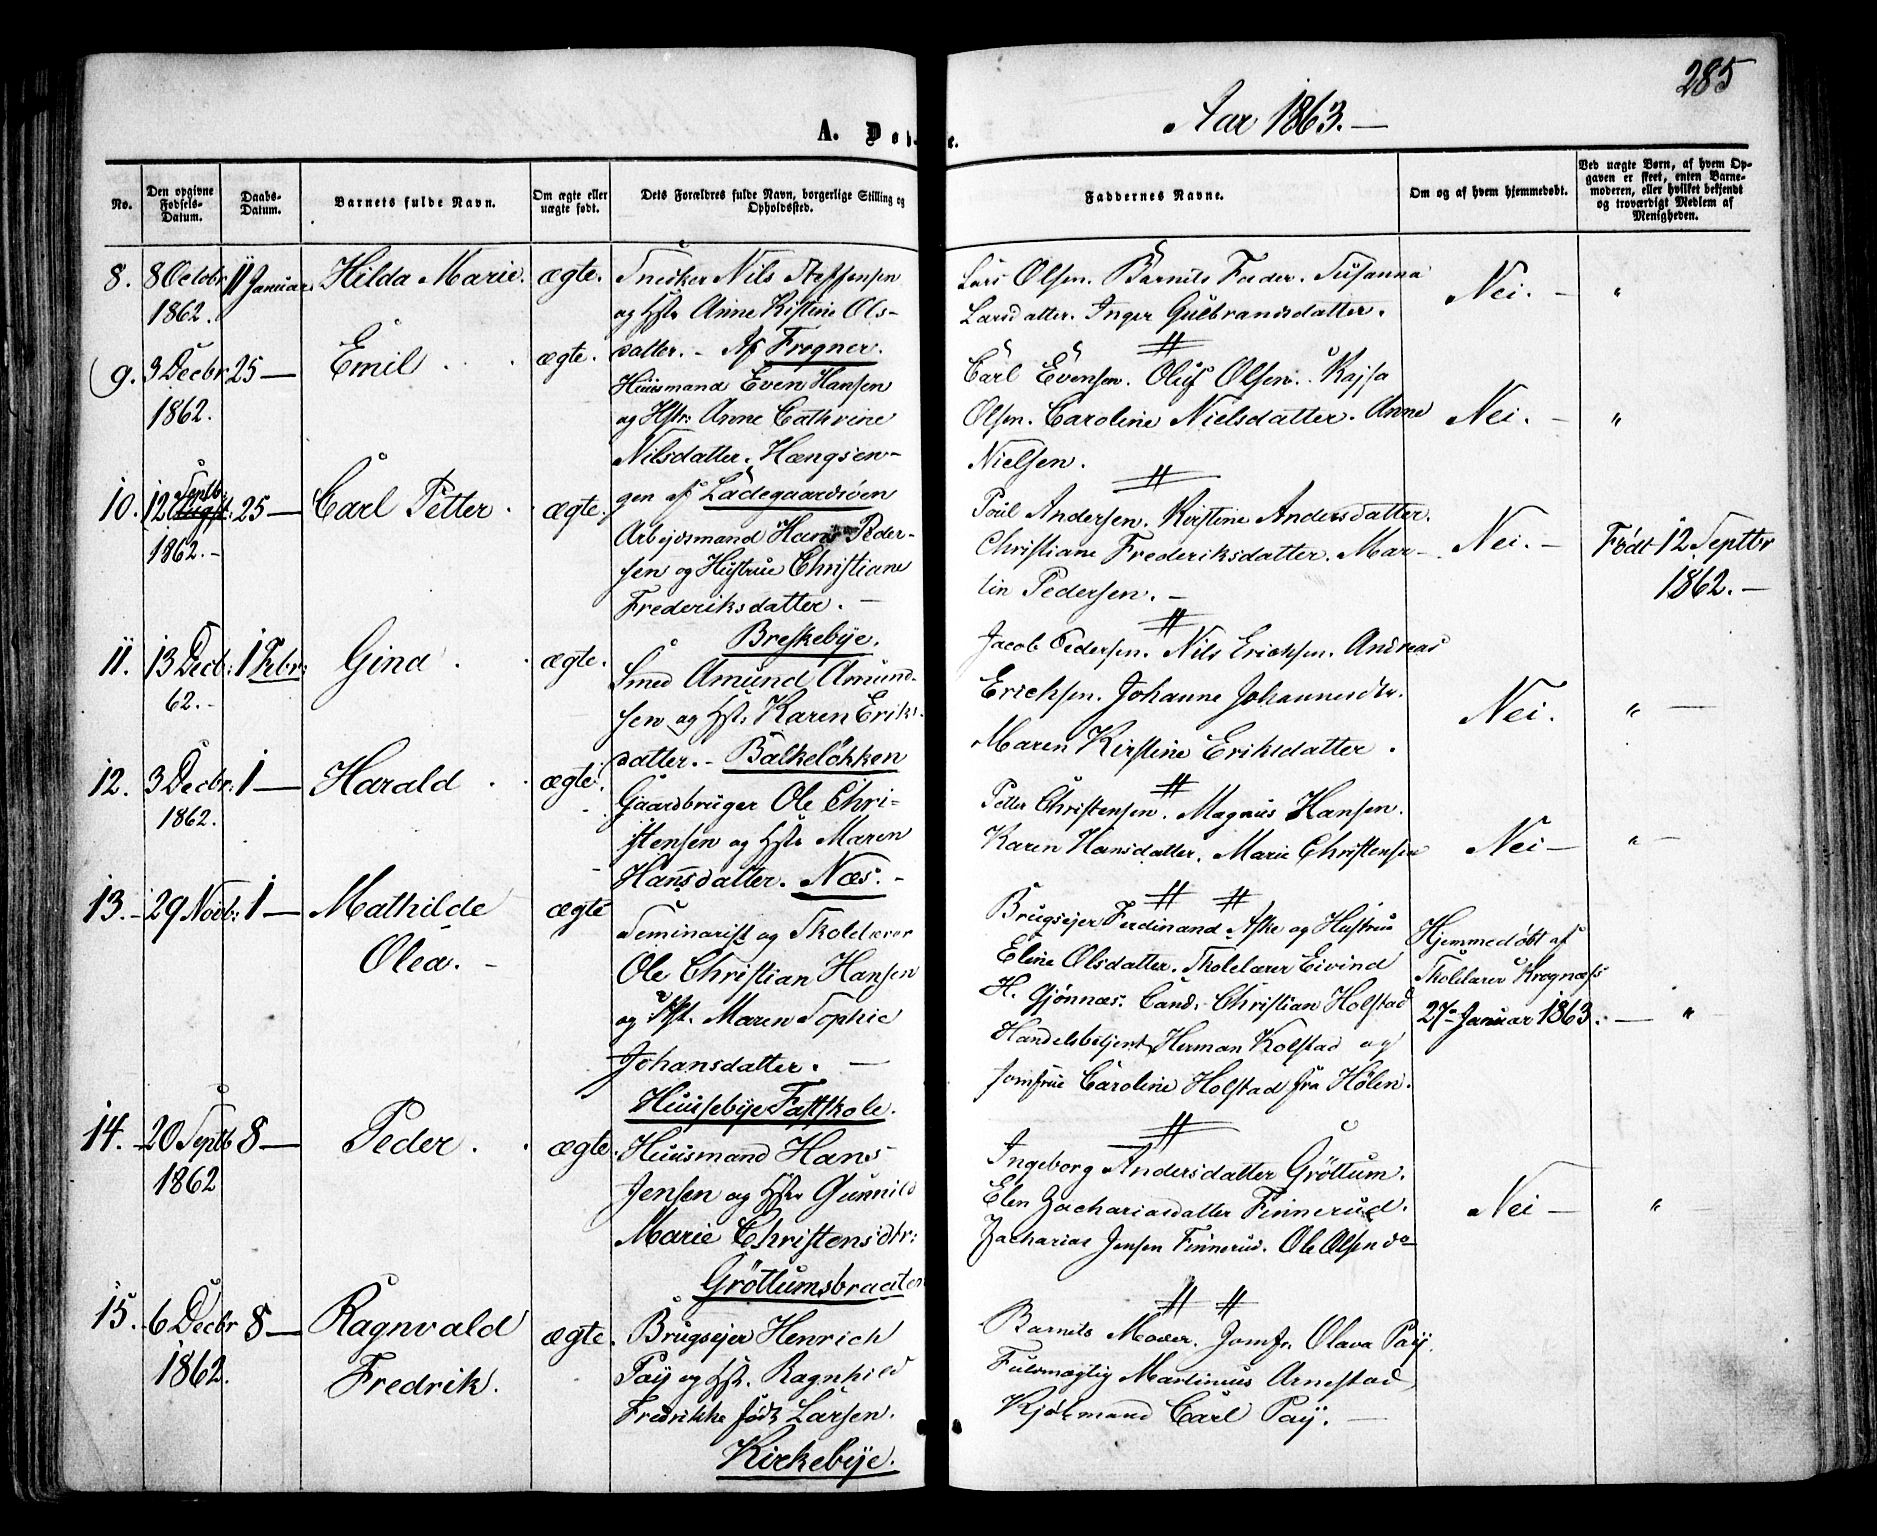 285
Aar 1863.—
A. Døb e.
No.
Den opgivne Fødsels-Datum.
Daabs-Datum.
Barnets fulde Navn.
Om ægte eller uægte født.
Dets Forældres fulde Navn, borgerlige Stilling og Opholdssted.
Faddernes Navne.
Om og af hvem hjemmedøbt.
Ved uægte Børn, af hvem Opgaven er skeet, enten Barnemoderen, eller hvilket bekjendt og troværdigt Medlem af Menigheden.
8. 8 Octobr 11 Januar Hilda Marie. ægte. Snedker Nils Steffensen
1862. og Hstr Anne Kistine Ols-
datter. - Af Frogner.
Lars Olsen. Barnets Fader. Susanna
Larsdatter. Inger Gulbrandsdatter.
Nei. — "
9. 3 Decbr 25 — Emil . ægte. Huusmand Even Hansen
1862. og Hstr: Anne Cathrine
Nilsdatter. Hængsen-
gen af Ladegaardsøen
Carl Evensen. Oluf Olsen. Kajsa
Olsen. Caroline Nielsdatter. Anne
Nielsen.
Nei. — "
10. 12 Septb: Augst. 25 — Carl Petter . ægte. Arbejdsmand Hans Peder-
1862. - sen og Hustrue Christiane
Frederiksdatter. —
Breskebye.
Poul Andersen. Kirstine Andersdatter.
Christiane Frederiksdatter. Mar-
tin Pedersen. -
Nei. — Født 12 Septbr
1862. -
11. 13 Decb: 1 Febr: Gina . ægte. Smed Amund Amund-
62. - sen og Hst. Karen Eriks-
datter. - Balkeløkken
Jacob Pedersen. Nils Ericksen. Andreas
Ericksen. Johanne Johannesdtr.
Maren Kirstine Eriksdatter .
Nei. " —
12. 3 Decbr: 1 — Harald . ægte. Gaardbruger Ole Chri-
1862. stensen og Hstr Maren
Hansdatter. Næs. -
Petter Christensen. Magnus Hansen.
Karen Hansdatter. Marie Christensen
Nei — " —
13. - 29 Novb: 1 — Mathilde ægte Seminarist og Skolelærer
Olea. - Ole Christian Hansen
og Hst. Maren Sophie
Johansdatter. —
Huusebye Fastskole.
Brugsejer Ferdinand Aske og Hustrue
Eline Olsdatter. Skolelærer Eivind
H. Gjönnæs. Cand. Christian Holstad
Handelsbetjent Herman Kolstad og
Jomfrue Caroline Holstad fra Hølen.
Hjemmedøbt af
Skolelærer Krognæss
27 Januar 1863. — "
14. - 20 Septb 8 — Peder . ægte. Huusmand Hans
1862 Jensen og Hstr Gunnild
Marie Christensdtr:
Gröttumsbraaten
Ingeborg Andersdatter Gröttum.
Elen Zachariasdatter Finnerud.
Zacharias Jensen Finnerud. Ole Olsen do
Nei — "
15. 6 Decbr 8 — Ragnvald ægte. Brugsejer Henrich
1862. Fredrik. Paÿ og Hst. Ragnhild
Fredrikke født Larsen.
Kirkebÿe.
Barnets Moder. Jomfr. Olava Paÿ.
Fuldmægtig Martinius Arnestad
Kjøbmand Carl Paÿ. —